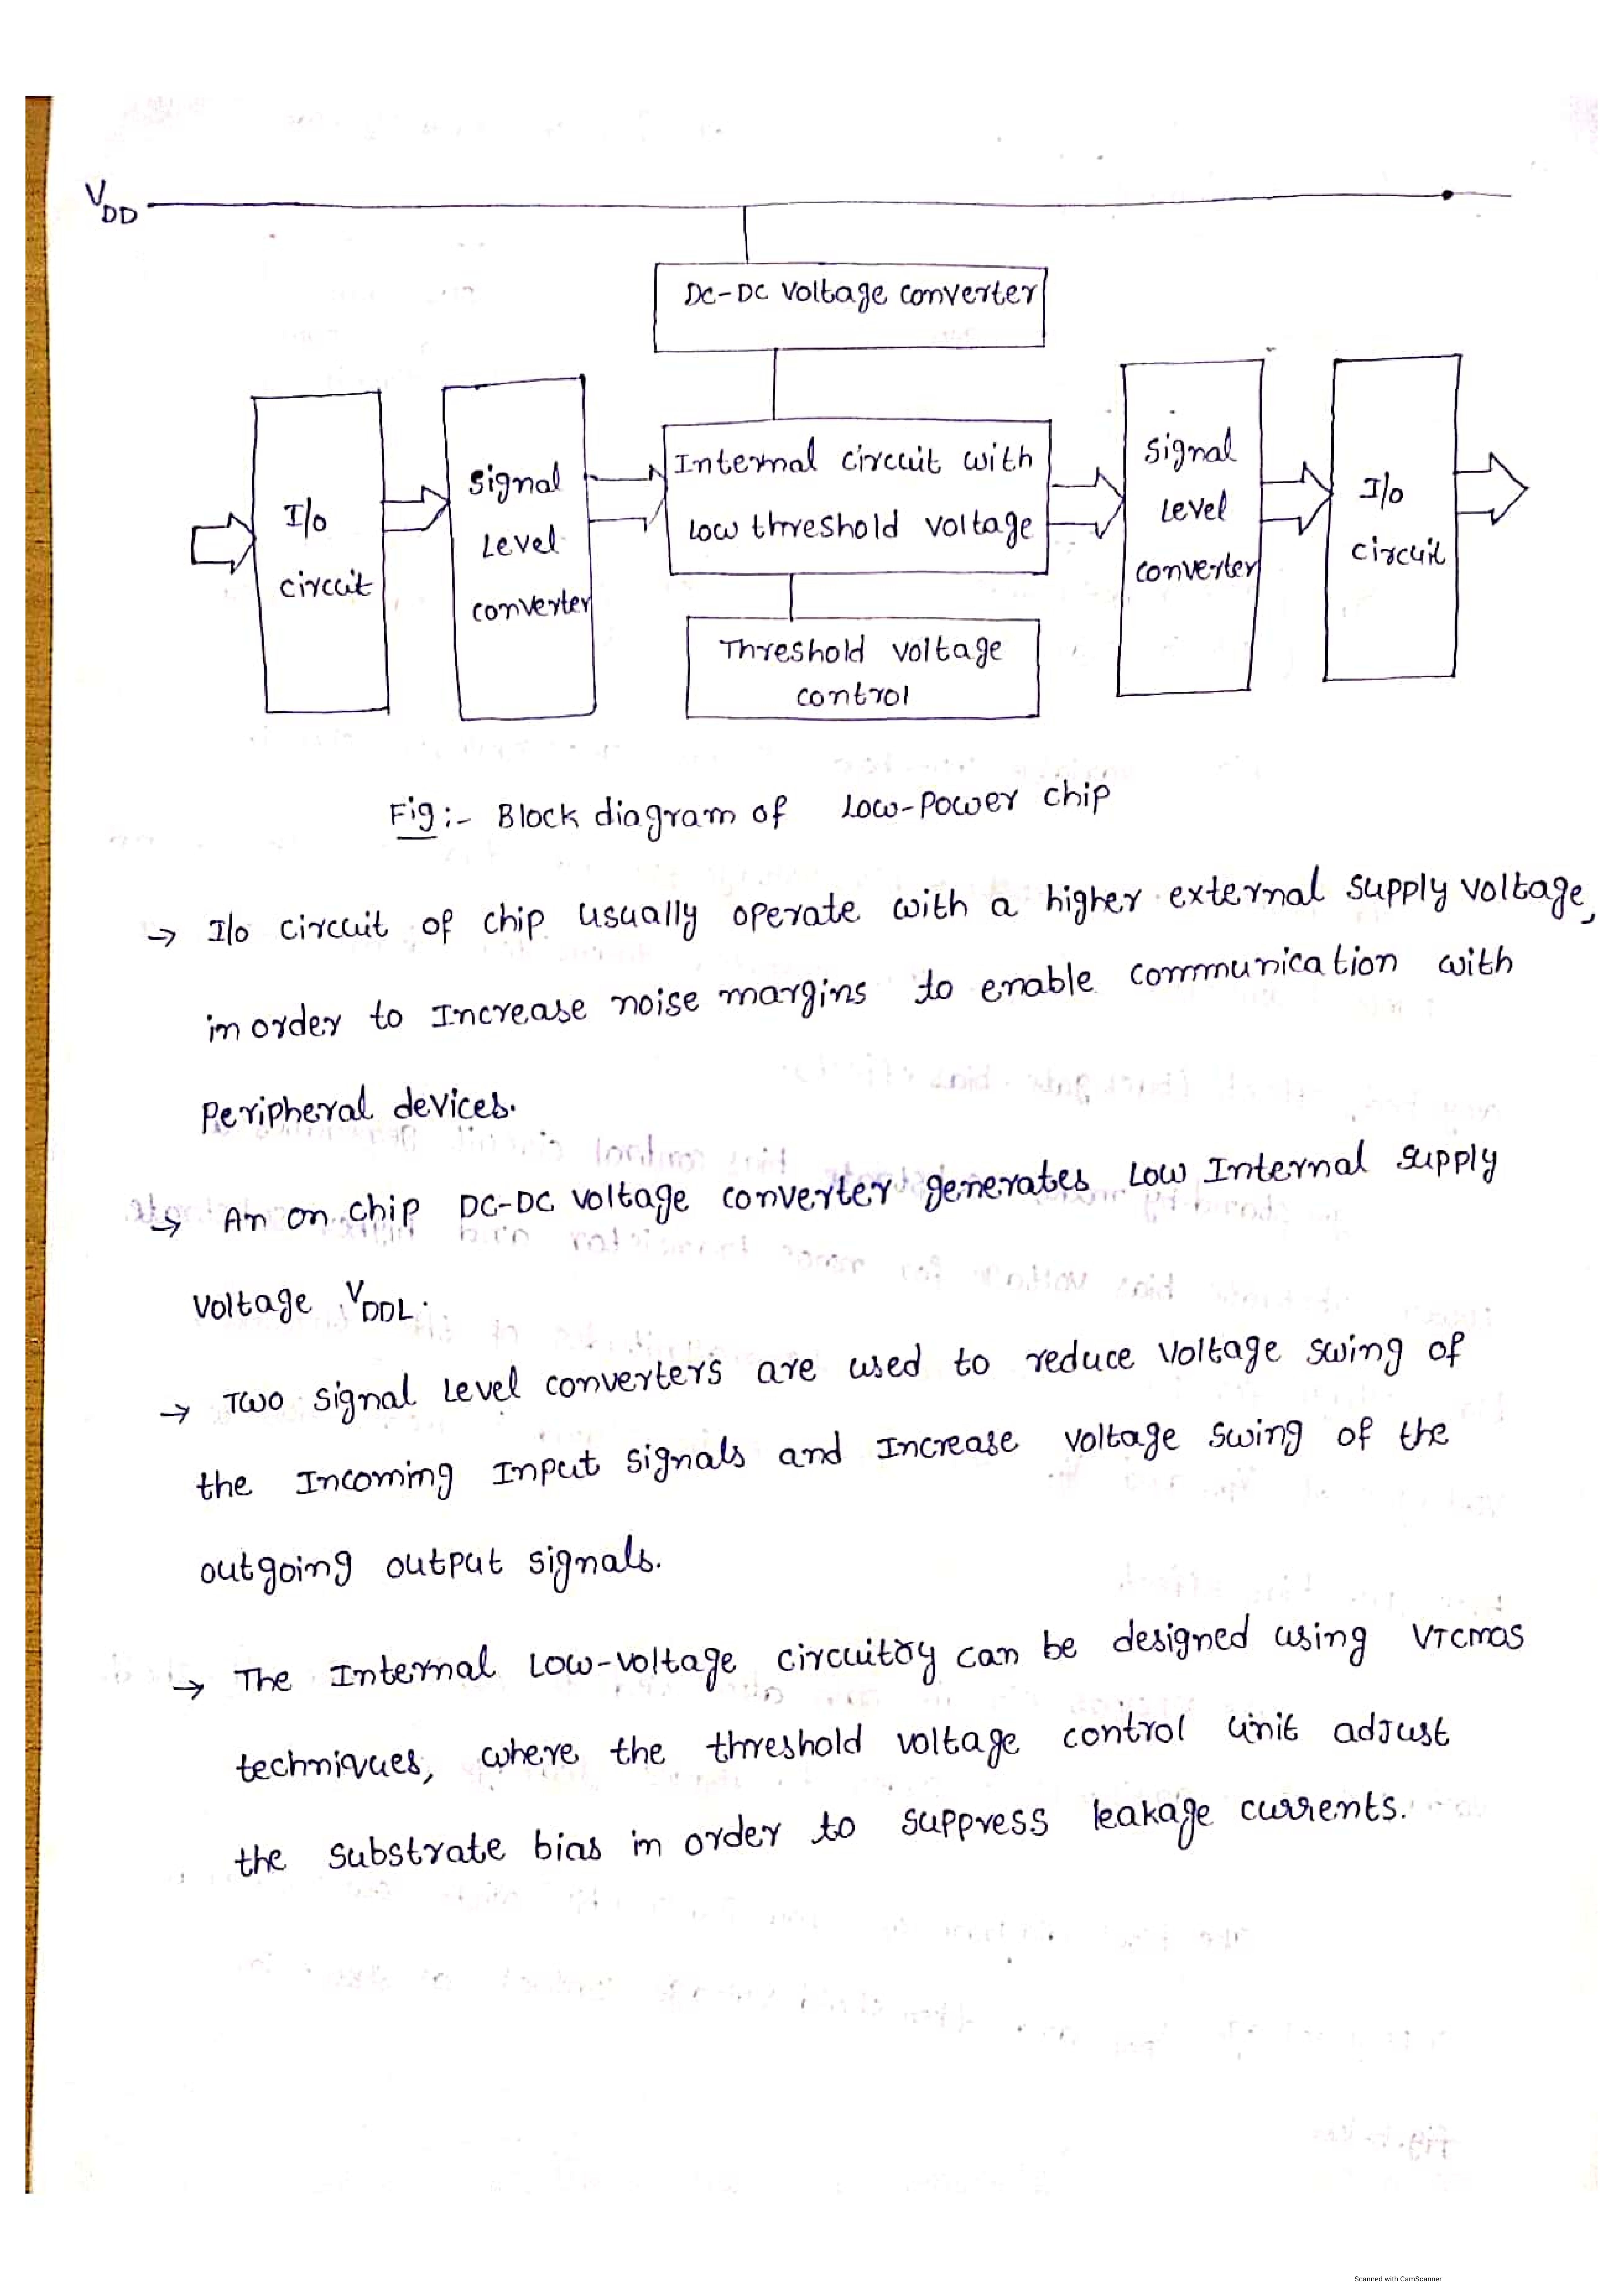 VDD
DC-DC Voltage converter
I/o
circuit
signal
Level
converter
Internal circuit with
Low threshold voltage
Threshold voltage
control
signal
Level
converter
I/o
circuit
Fig:- Block diagram of Low-Power chip
→ I/o circuit of chip usually operate with a higher external supply voltage,
in order to Increase noise margins to enable communication with
Peripheral devices.
→ An on chip DC-DC voltage converter generates Low Internal supply
Voltage VDDL.
→ Two signal Level converters are used to reduce Voltage swing of
the Incoming Input signals and Increase voltage swing of the
outgoing output signals.
→ The Internal Low-voltage circuitry can be designed using VTCMOS
techniques, where the threshold voltage control unit adjust
the substrate bias in order to suppress leakage currents.
Scanned with CamScanner